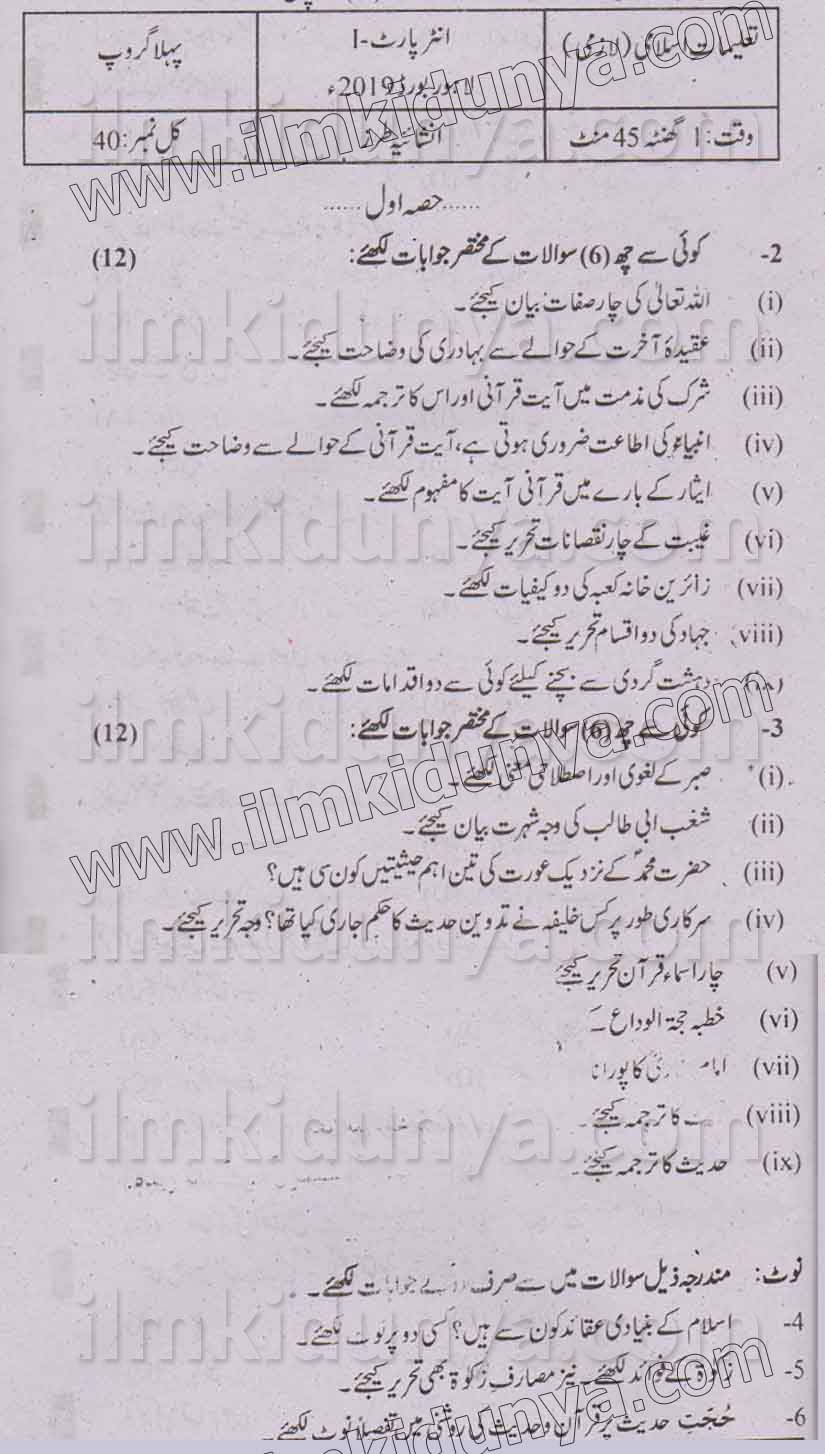 تعلیمات اسلامی (لازمی)
انٹر پارٹ-I
پہلا گروپ
لاہور بورڈ 2019ء
وقت: 1 گھنٹہ 45 منٹ
انشائیہ طرز
کل نمبر: 40
www.ilmkidunya.com
......حصہ اول......
2- کوئی سے چھ (6) سوالات کے مختصر جوابات لکھئے: (12)
(i) اللہ تعالیٰ کی چار صفات بیان کیجئے۔
ilmkidunya.com
(ii) عقیدۂ آخرت کے حوالے سے بہادری کی وضاحت کیجئے۔
(iii) شرک کی مذمت میں آیت قرآنی اور اس کا ترجمہ لکھئے۔
(iv) انبیاءؑ کی اطاعت ضروری ہوتی ہے، آیت قرآنی کے حوالے سے وضاحت کیجئے۔
(v) ایثار کے بارے میں قرآنی آیت کا مفہوم لکھئے۔
ilmkidunya.com
(vi) غیبت کے چار نقصانات تحریر کیجئے۔
(vii) زائرین خانہ کعبہ کی دو کیفیات لکھئے۔
(viii) جہاد کی دو اقسام تحریر کیجئے۔
(ix) دہشت گردی سے بچنے کیلئے کوئی سے دو اقدامات لکھئے۔
ilmkidunya.com
3- کوئی سے چھ (6) سوالات کے مختصر جوابات لکھئے: (12)
www.ilmkidunya.com
(i) صبر کے لغوی اور اصطلاحی معنی لکھئے۔
(ii) شعب ابی طالب کی وجہ شہرت بیان کیجئے۔
(iii) حضرت محمدؐ کے نزدیک عورت کی تین اہم حیثیتیں کون سی ہیں؟
(iv) سرکاری طور پر کس خلیفہ نے تدوین حدیث کا حکم جاری کیا تھا؟ وجہ تحریر کیجئے۔
ilmkidunya.com
(v) چار اسماء قرآن تحریر کیجئے
(vi) خطبہ حجۃ الوداع
(vii) کا پورا نا
(viii) کا ترجمہ کیجئے۔
ilmkidunya.com
(ix) حدیث کا ترجمہ کیجئے۔
نوٹ: مندرجہ ذیل سوالات میں سے صرف جوابات لکھئے۔
4- اسلام کے بنیادی عقائد کون سے ہیں؟ کسی دو پر نوٹ لکھئے۔
ilmkidunya.com
5- زکوٰۃ کے فوائد لکھئے۔ نیز مصارفِ زکوٰۃ بھی تحریر کیجئے۔
6- حُجتِ حدیث پر قرآن و حدیث کی روشنی میں تفصلاً نوٹ لکھئے۔
www.ilmkidunya.com